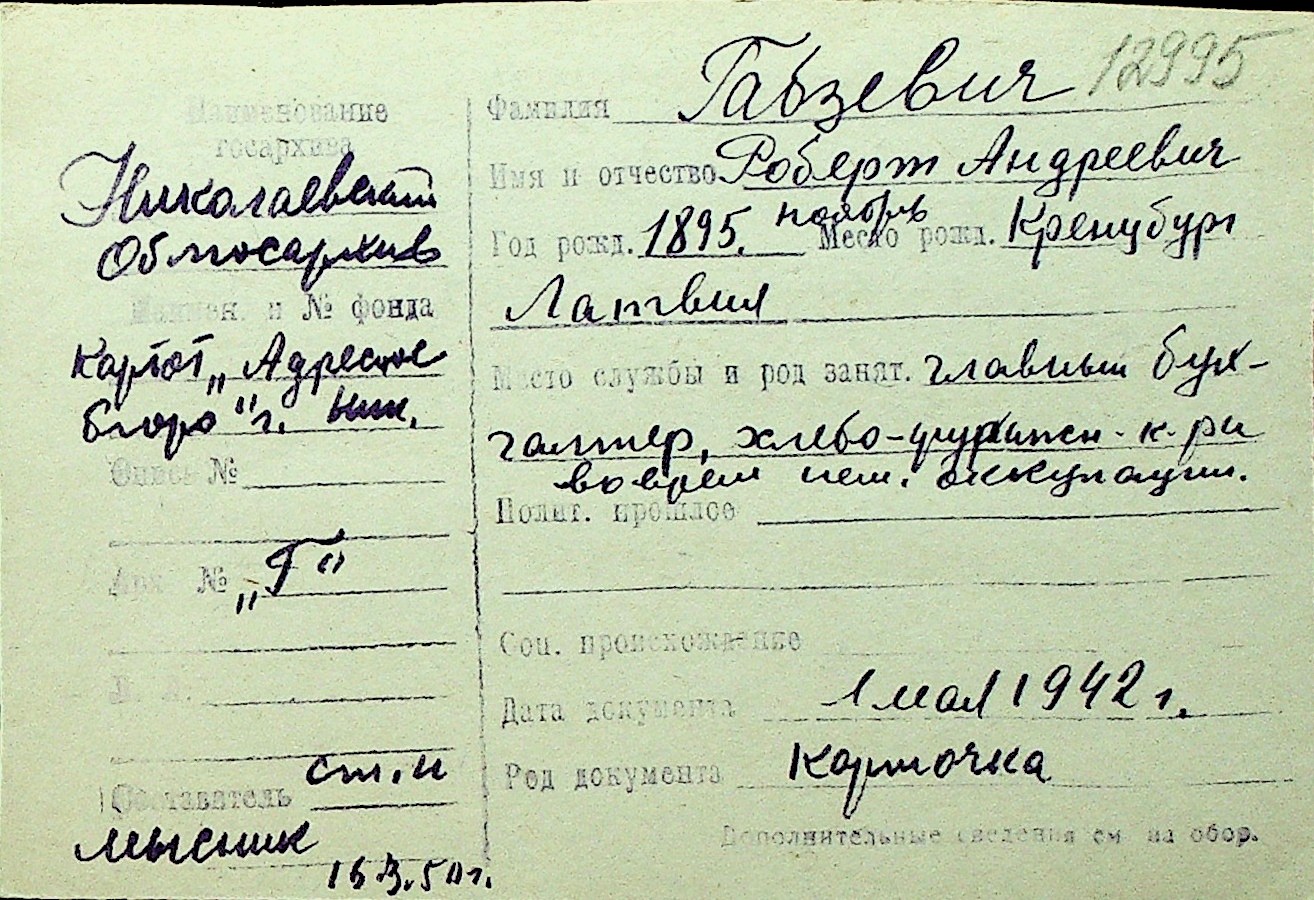 12995
Наименование
госархива
Николаевский
Облгосархив
Наимен. и № фонда
Картот „Адресное
бюро" г. Ник.
Опись №
Арх. №
„Г"
Составитель ст. н
Мысник
50 г.
Фамилия Габзевич
Имя и отчество Роберт Андреевич
Год рожд. 1895. ноябрь Место рожд. Кренцбург
Латвия
Место службы и род занят. главный бух-
галтер, хлебо-фуражн. к-ры
во время нем. оккупации.
Полит. прошлое
Соц. происхождение
Дата документа 1 мая 1942 г.
Род документа Карточка
Дополнительные сведения см. на обор.